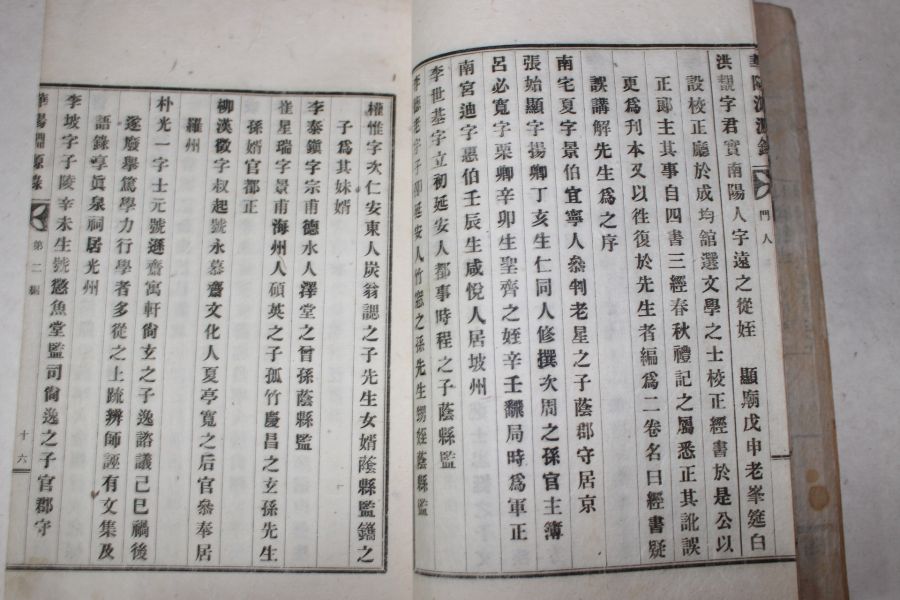 華陽淵源錄 門人
洪覩字君實南陽人字遠之從姪 顯廟戊申老峯筵白
設校正廳於成均館選文學之士校正經書於是公以
正郞主其事自四書三經春秋禮記之屬悉正其訛誤
更爲刊本又以徃復於先生者編爲二卷名曰經書疑
誤講解先生爲之序
南宅夏字景伯宜寧人叅判老星之子蔭郡守居京
張始顯字揚卿丁亥生仁同人修撰次周之孫官主簿
呂必寬字栗卿辛卯生聖齊之姪辛壬飜局時爲軍正
南宮迪字惠伯壬辰生咸悅人居坡州
李世基字立初延安人都事時程之子蔭縣監
李德老字子卽延安人竹窓之孫先生甥姪蔭縣監
權惟字次仁安東人炭翁諰之子先生女婿蔭縣監鑴之
子爲其妹婿
李泰鎭字宗甫德水人澤堂之曾孫蔭縣監
崔星瑞字景甫海州人碩英之子孤竹慶昌之玄孫先生
孫婿官都正
柳漢徵字叔起號永慕齋文化人夏亭寬之后官叅奉居
羅州
朴光一字士元號遜齋寓軒尙玄之子逸諮議己巳禍後
遂廢擧篤學力行學者多從之上䟽辨師誣有文集及
語錄享眞泉祠居光州
李坡字子陵辛未生號慾魚堂監司尙逸之子官郡守
華陽淵源錄 第二編 十六